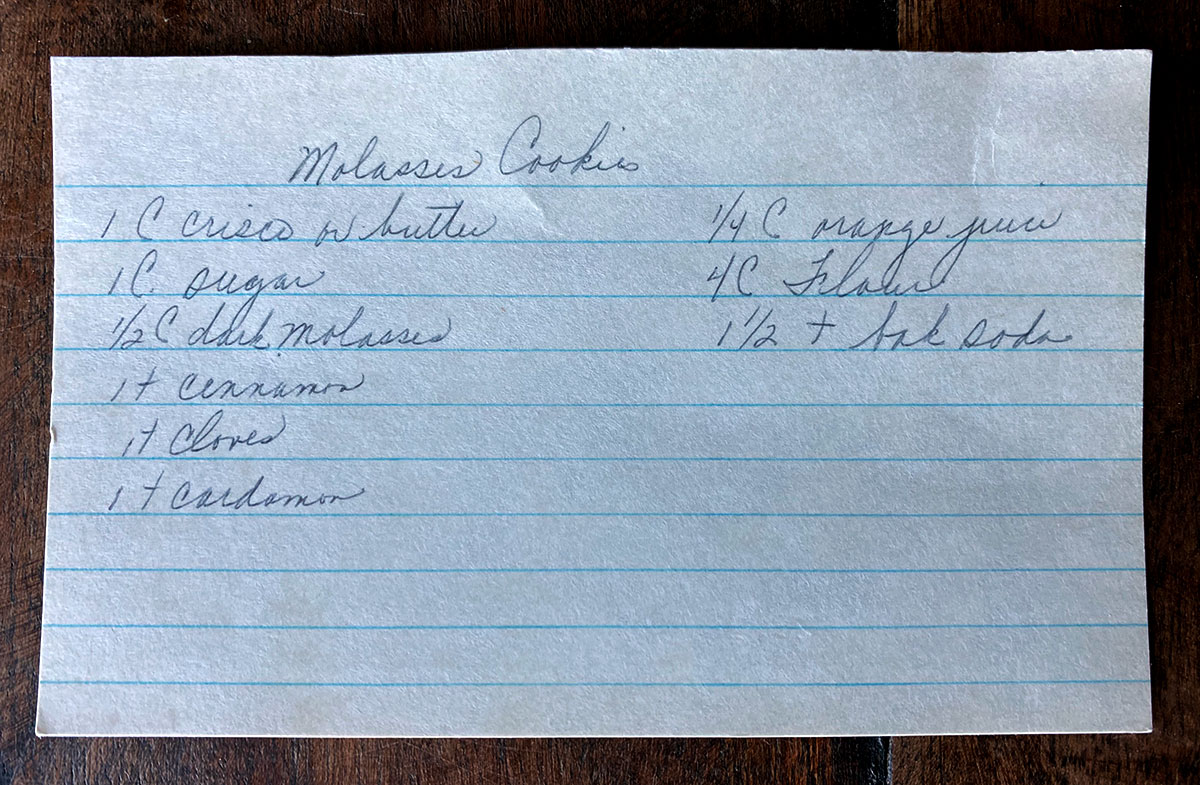 Molasses Cookies
1 C crisco or butter
1 C. sugar
1/2 C dark molasses
1 t cennamon
1 t cloves
1 t cardamon
1/4 C orange juice
4 C Flour
1 1/2 t bak soda